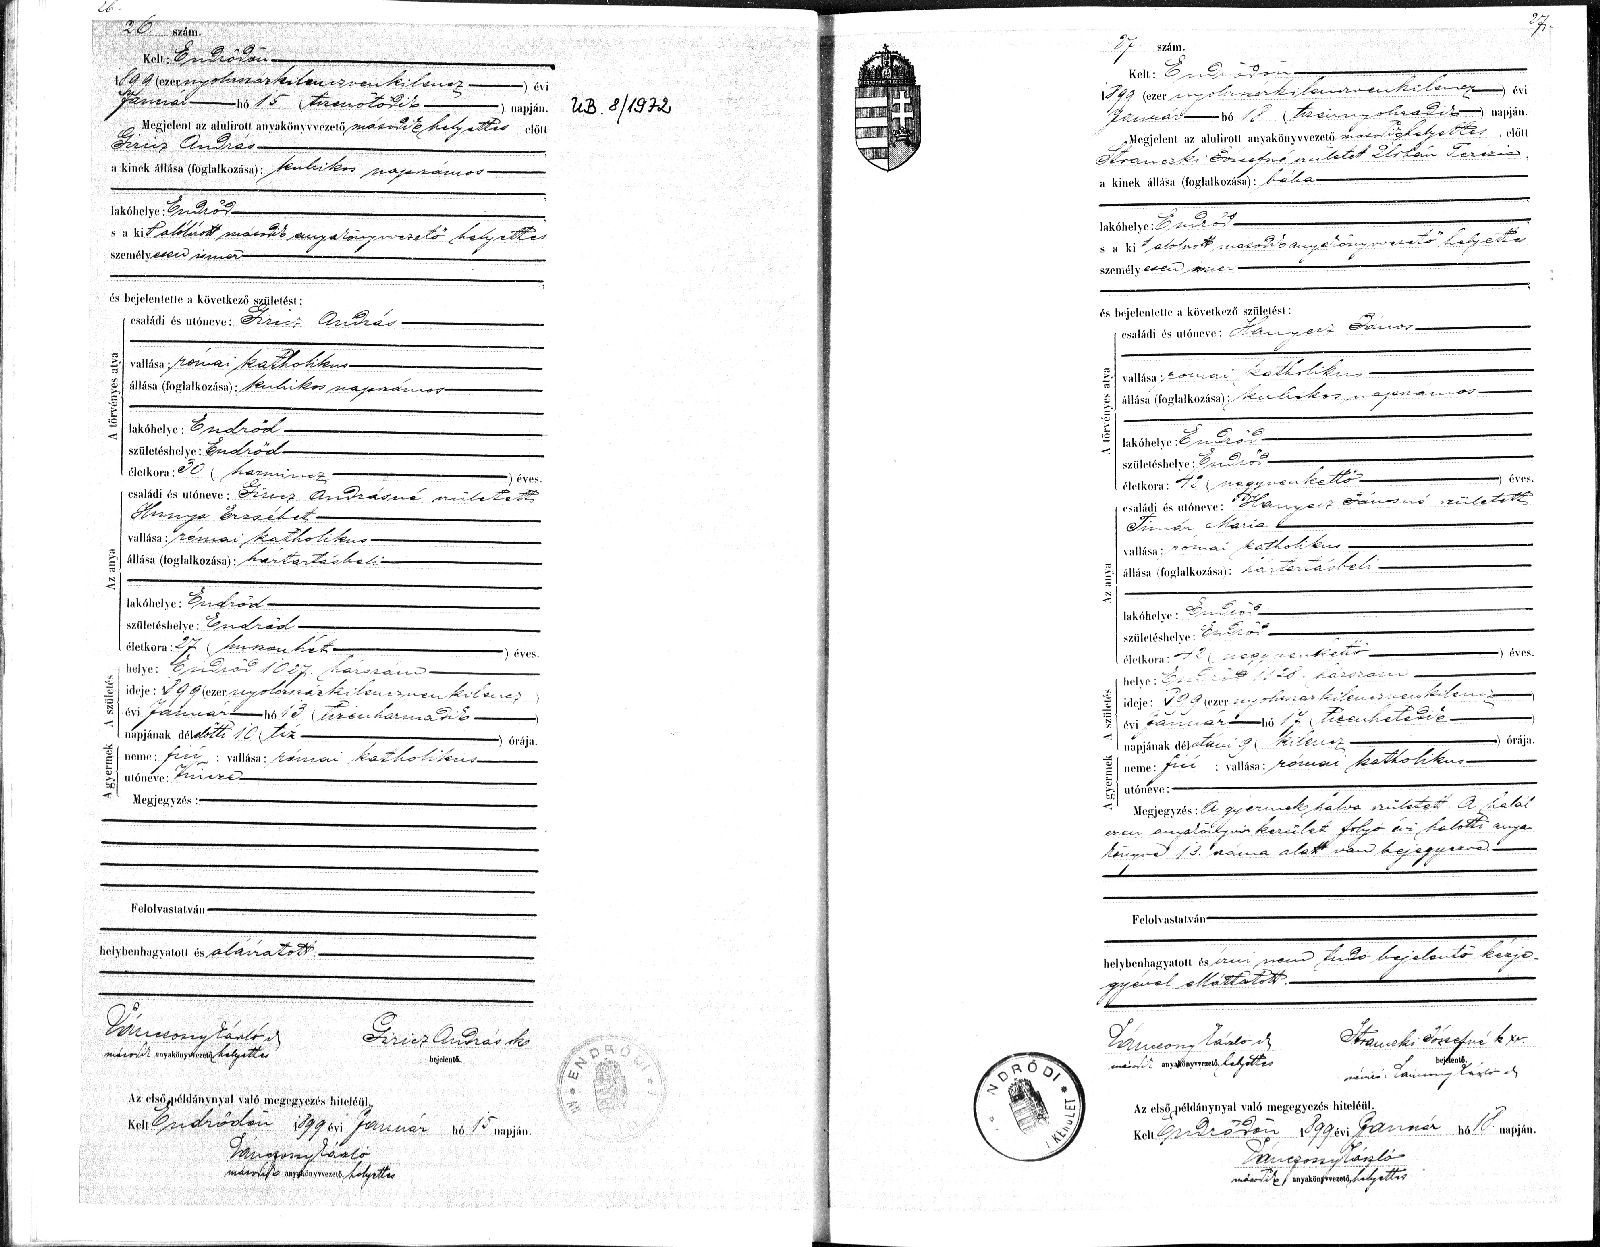 26.
26. szám.
Kelt: Endrődön
1899 (ezernyolcszázkilenczvenkilencz) évi
Január hó 15 (tizenötödik) napján.
Megjelent az alulirott anyakönyvvezető második helyettes előtt
Giricz András
a kinek állása (foglalkozása): kubikos napszámos
lakóhelye: Endrőd
s a kit alólirott második anyakönyvvezető helyettes
személyesen ismer
és bejelentette a következő születést:
A törvényes atya
családi és utóneve: Giricz András
vallása: római katholikus
állása (foglalkozása): kubikos napszámos
lakóhelye: Endrőd
születéshelye: Endrőd
életkora: 30 (harmincz) éves.
Az anya
családi és utóneve: Giricz Andrásné született
Hunya Erzsébet
vallása: római katholikus
állása (foglalkozása): háztartásbeli
lakóhelye: Endrőd
születéshelye: Endrőd
életkora: 27 (huszonhét) éves.
A születés
helye: Endrőd 1027. házszám
ideje: 899 (ezernyolczszázkilenczvenkilencz)
évi Január hó 13 (tizenharmadik)
napjának délelőtti 10 (tíz) órája.
A gyermek
neme: fiú : vallása: római katholikus
utóneve: Vincze
Megjegyzés:
Felolvastatván
helybenhagyatott és aláiratott.
Vánczony László
második anyakönyvvezető helyettes
Giricz András sk
bejelentő.
Az első példánynyal való megegyezés hiteléül.
Kelt Endrődön 1899 évi Január hó 15 napján.
Vánczony László
második anyakönyvvezető helyettes
UB. 8/1972
ENDRŐDI
27.
27 szám.
Kelt: Endrődön
1899 (ezer nyolczszázkilenczvenkilencz) évi
Január hó 18 (tizennyolczadik) napján.
Megjelent az alulirott anyakönyvvezető második helyettes előtt
Józsefné született Terézia
a kinek állása (foglalkozása): bába
lakóhelye: Endrőd
s a kit alólirott második anyakönyvvezető helyettes
személyesen ismer
és bejelentette a következő születést:
A törvényes atya
családi és utóneve: Hanyecz János
vallása: római katholikus
állása (foglalkozása): kubikos napszámos
lakóhelye: Endrőd
születéshelye: Endrőd
életkora: 42 (negyvenkettő) éves.
Az anya
családi és utóneve: Hanyecz Jánosné született
Timár Mária
vallása: római katholikus
állása (foglalkozása): háztartásbeli
lakóhelye: Endrőd
születéshelye: Endrőd
életkora: 42 (negyvenkettő) éves.
A születés
helye: Endrőd házszám
ideje: 899 (ezernyolczszázkilenczvenkilencz)
évi Január hó 17 (tizenhetedik)
napjának délutáni 9 (kilencz) órája.
A gyermek
neme: fiú : vallása: római katholikus
utóneve:
Megjegyzés: A gyermek halva született. A halál
ezen anyakönyvi kerület folyó évi halotti anya-
könyvé 13. száma alatt van bejegyezve.
Felolvastatván
helybenhagyatott és írni nem tudó bejelentő kézje-
gyével elláttatott.
Vánczony László
második anyakönyvvezető helyettes
Józsefné
bejelentő.
Az első példánynyal való megegyezés hiteléül.
Kelt Endrődön 1899 évi Január hó 18 napján.
Vánczony László
második anyakönyvvezető helyettes
NDRŐDI